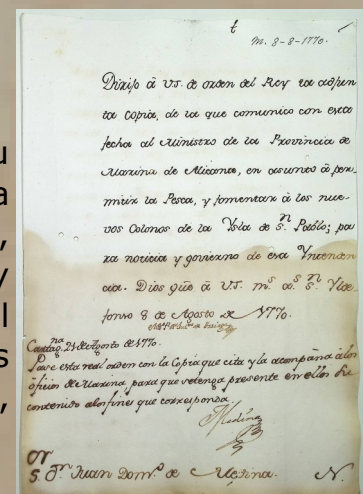 t
M. 8-8-1770.
Dirijo à VS. de orden del Rey la adjun
ta Copia, de la que comunico con esta
fecha al Ministro de la Provincia de
Marina de Alicante, en asunto à per
mitir la Pesca, y fomentar à los nue
vos Colonos de la Ysla de S.n Pablo; pa
ra noticia y govierno de esa Yntenden
cia. Dios gũe à VS. m.s a.s S.n Ylde
fonso 8 de Agosto de 1770.
Cartag.na 21 de Agosto de 1770.
Pase esta real orden con la Copia que cita y la acompaña à los
oficios de Marina, para que se tenga presente en ellos su
contenido a los fines que corresponda.
Medina
S.or D.n Juan Dom.o de Medina.
N.
u
a
,
y
l
s
,